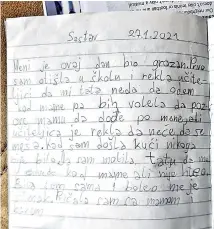 Sastav 27.1.2021
Meni je ovaj dan bio grozan. Prvo
sam otišla u školu i rekla učite-
ljici da mi tata neda da odem
kod mame pa bi volela da pozo-
ve mamu da dođe po mene, ali
učiteljica je rekla da neće da se
meša. kad sam došla kući nikoga
nije bilo da sam molila tatu da me
kod mame ali nije hteo.
Bila sam sama i boleo me je
sam sa mamom